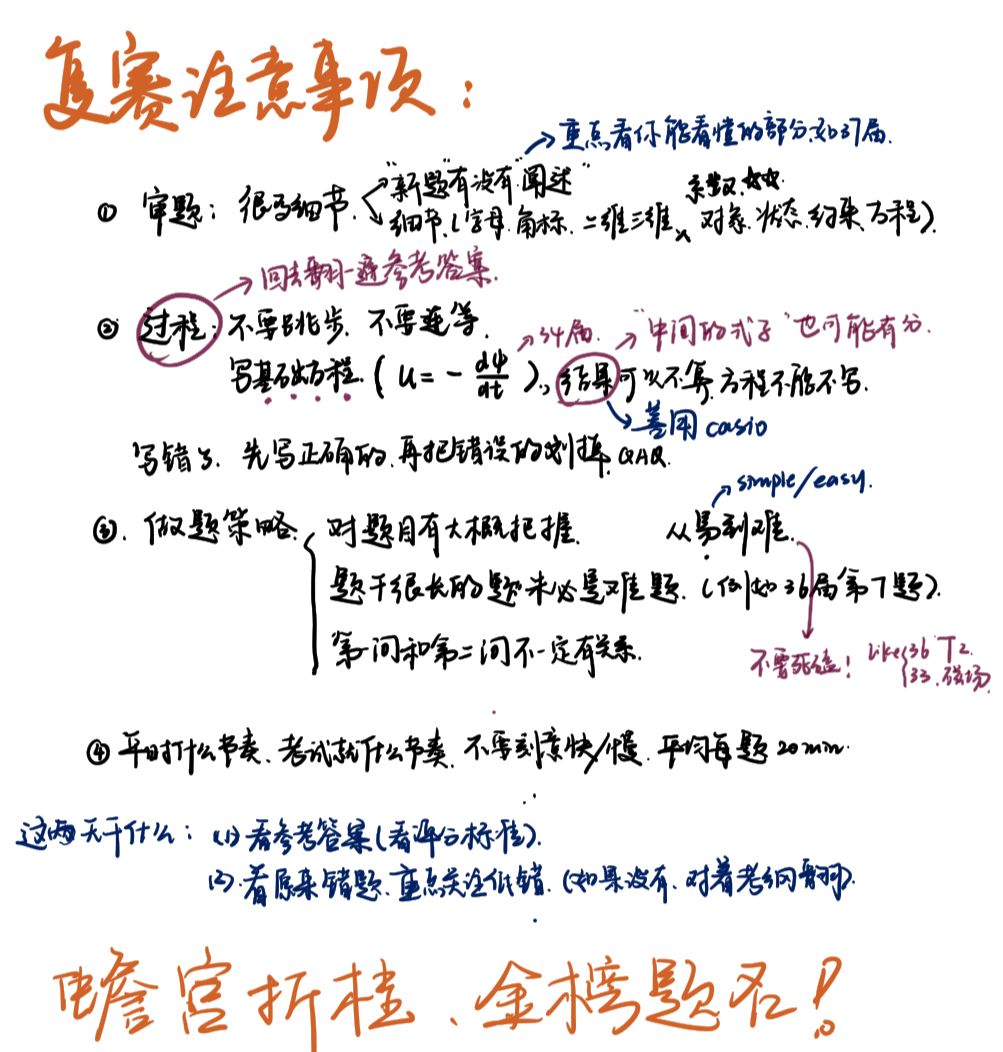 复赛注意事项：
→重点看你能看懂的部分.如37届.
① 审题：很多细节. "新题"有没有"阐述"
系数.☆☆.
细节.(字母.角标.二维三维、对象.状态.约束.方程).
→回去翻一遍参考答案.
② 过程：不要跳步.不要连等.
→34届. →"中间的式子"也可能有分.
写基础方程.(u=-dψ/dt)、结果可以不算.方程不能不写.
→善用 casio
写错了.先写正确的.再把错误的划掉.QAQ.
→simple/easy.
③.做题策略. 对题目有大概把握. 从易到难.
题干很长的题未必是难题.(例如36届第7题).
第一问和第二问不一定有关系.
不要死磕! Like 36 T2.
33.磁场.
④平时什么节奏、考试就什么节奏.不要刻意快/慢.平均每题20min.
这两天干什么：(1)看参考答案(看评分标准).
(2).看原来错题.重点关注低错.(如果没有.对着考纲翻).
蟾宫折桂、金榜题名!